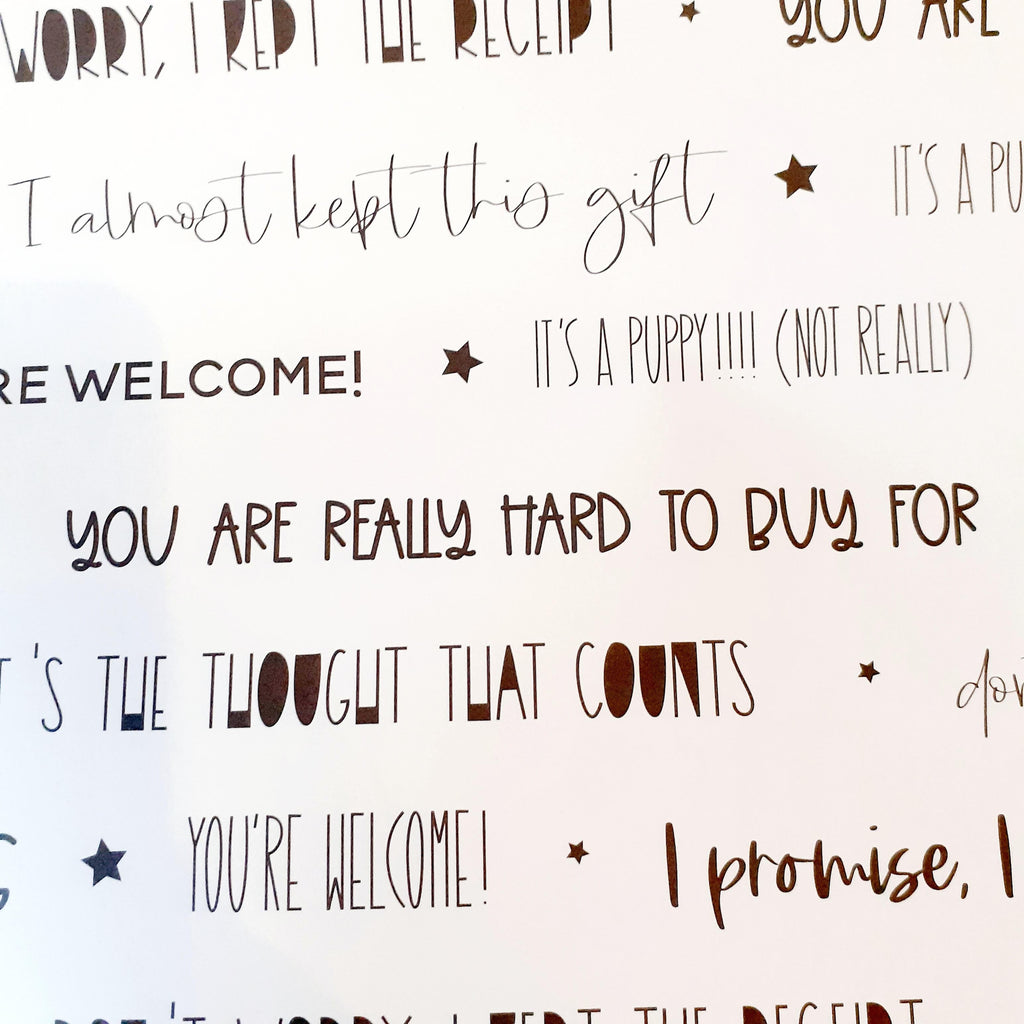 WORRY, I KEPT THE RECEIPT ★ YOU ARE
I almost kept this gift ★ IT'S A PU
RE WELCOME! ★ IT'S A PUPPY!!!! (NOT REALLY)
YOU ARE REALLY HARD TO BUY FOR
T'S THE THOUGHT THAT COUNTS ★ don
G ★ YOU'RE WELCOME! ★ I promise, I
DON'T WORRY, I KEPT THE RECEIPT